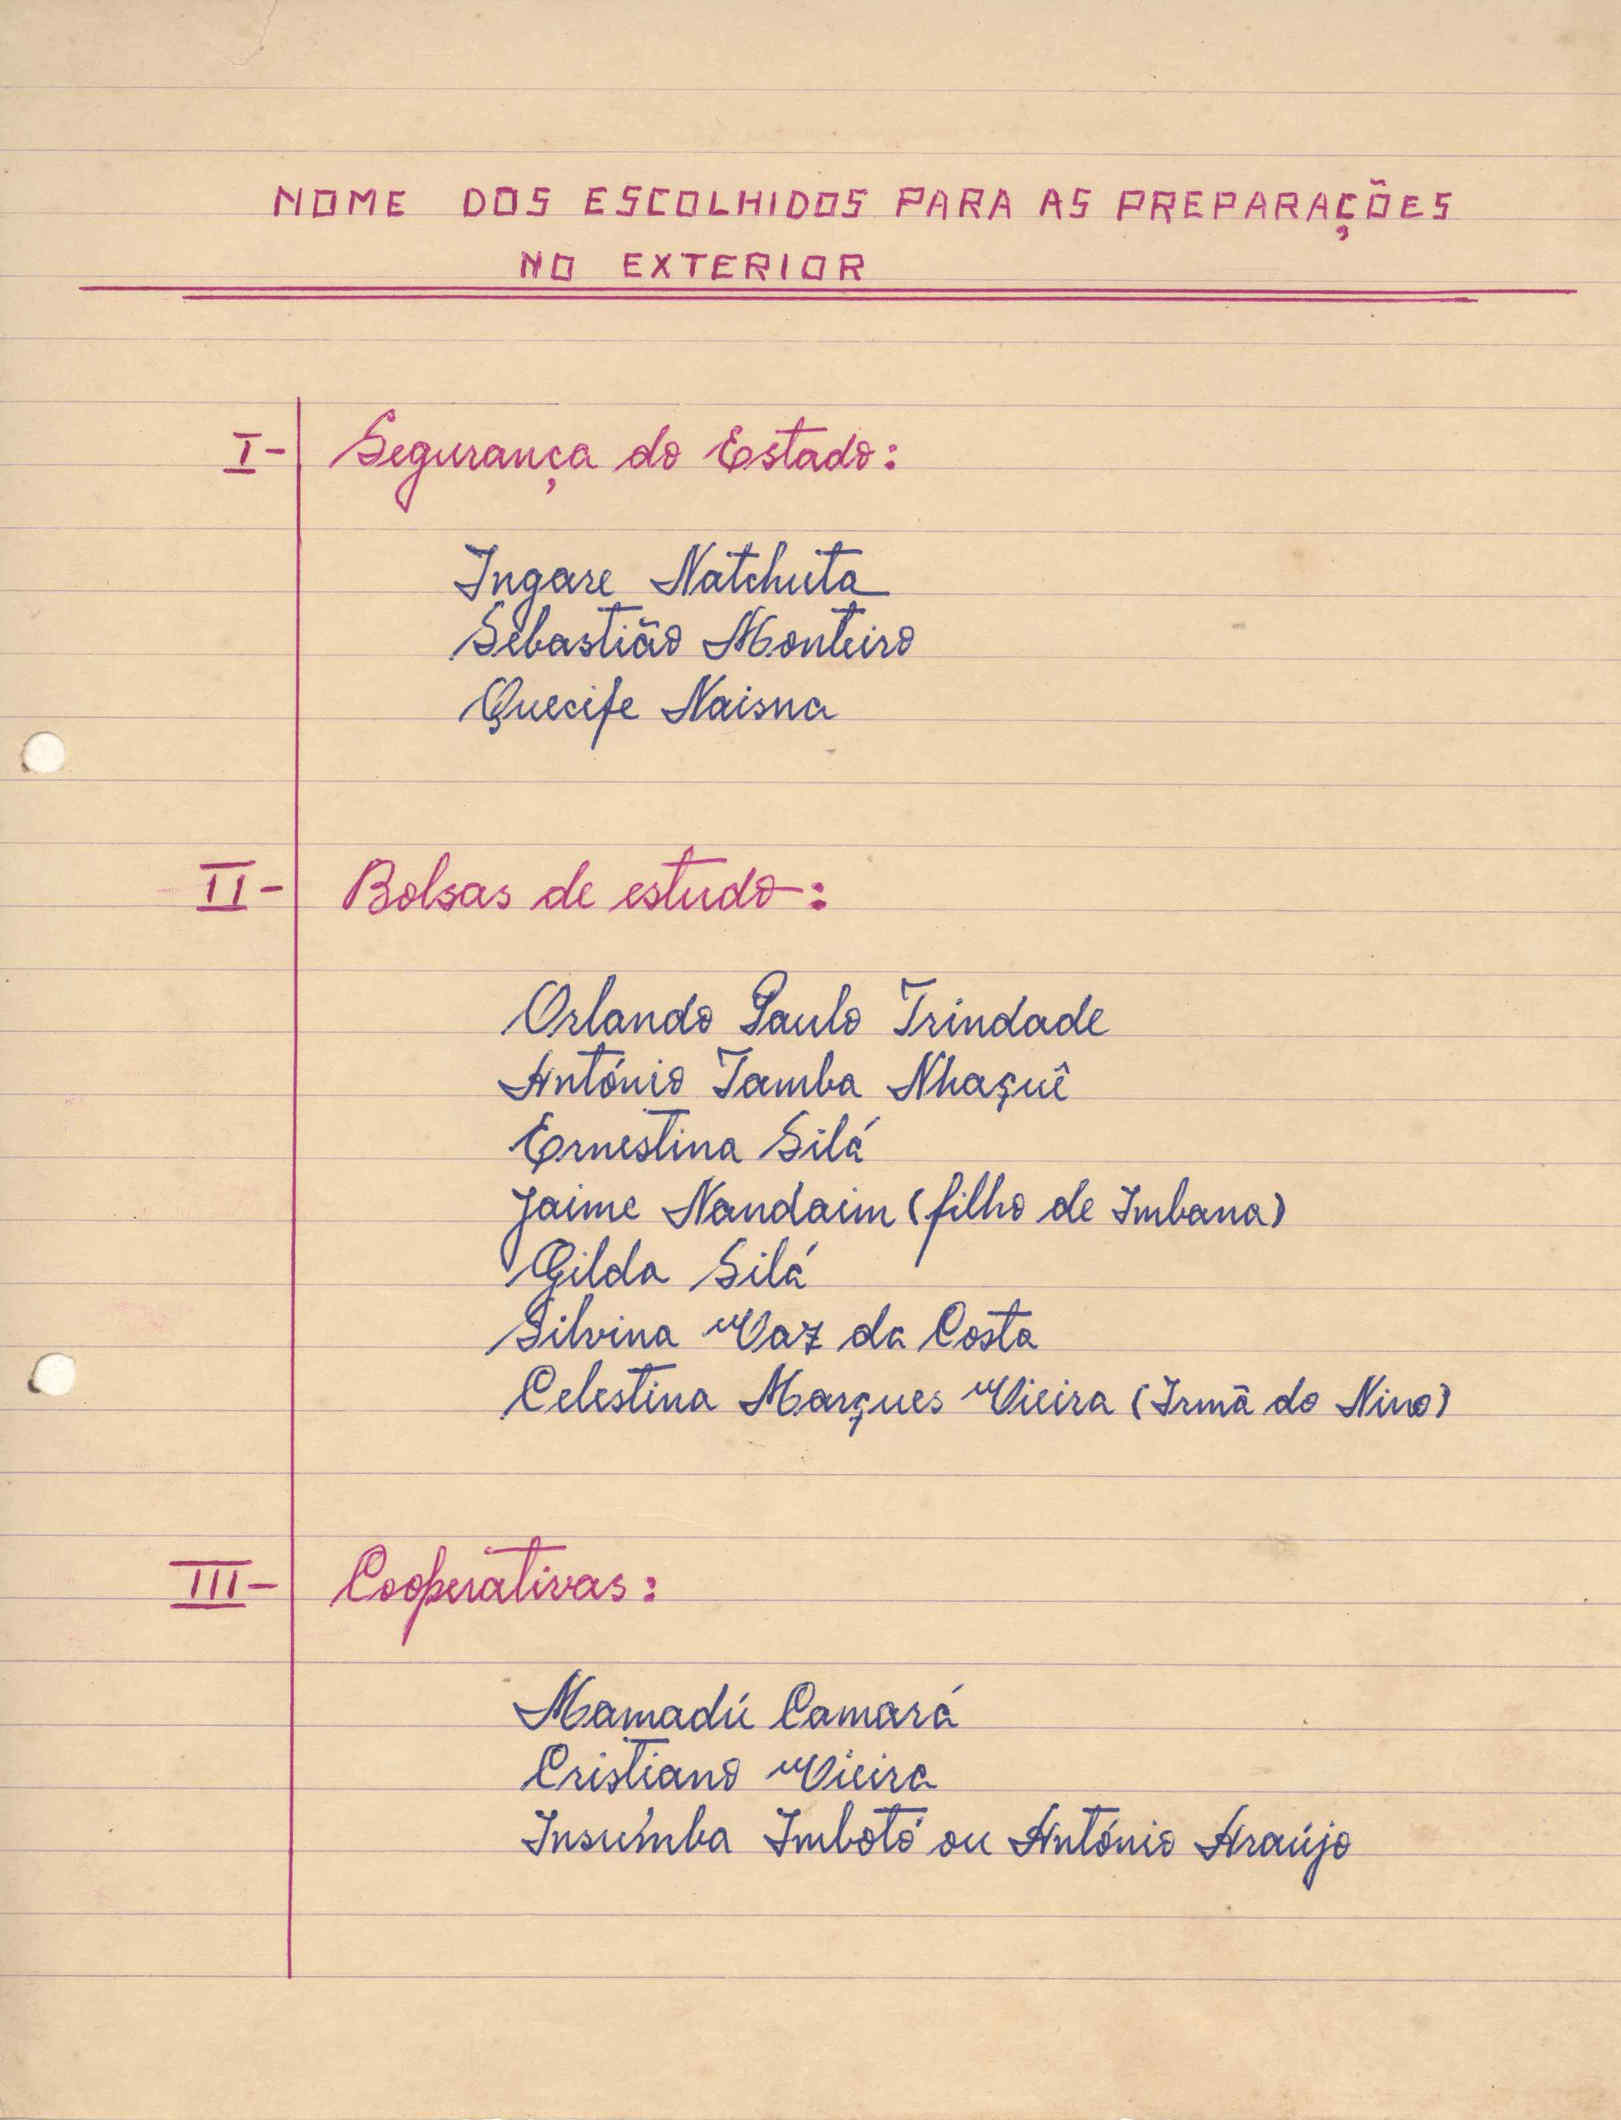 NOME DOS ESCOLHIDOS PARA AS PREPARAÇÕES
NO EXTERIOR
I- Segurança do Estado:
Ingare Natchuta
Sebastião Monteiro
Quecife Naisna
II- Bolsas de estudo:
Orlando Paulo Trindade
António Tamba Nhaquê
Ernestina Silá
Jaime Nandaim (filho de Imbana)
Gilda Silá
Silvina Vaz da Costa
Celestina Marques Vieira (Irmã do Nino)
III- Cooperativas:
Mamadú Camará
Cristiano Vieira
Insumba Imbotó ou António Araújo